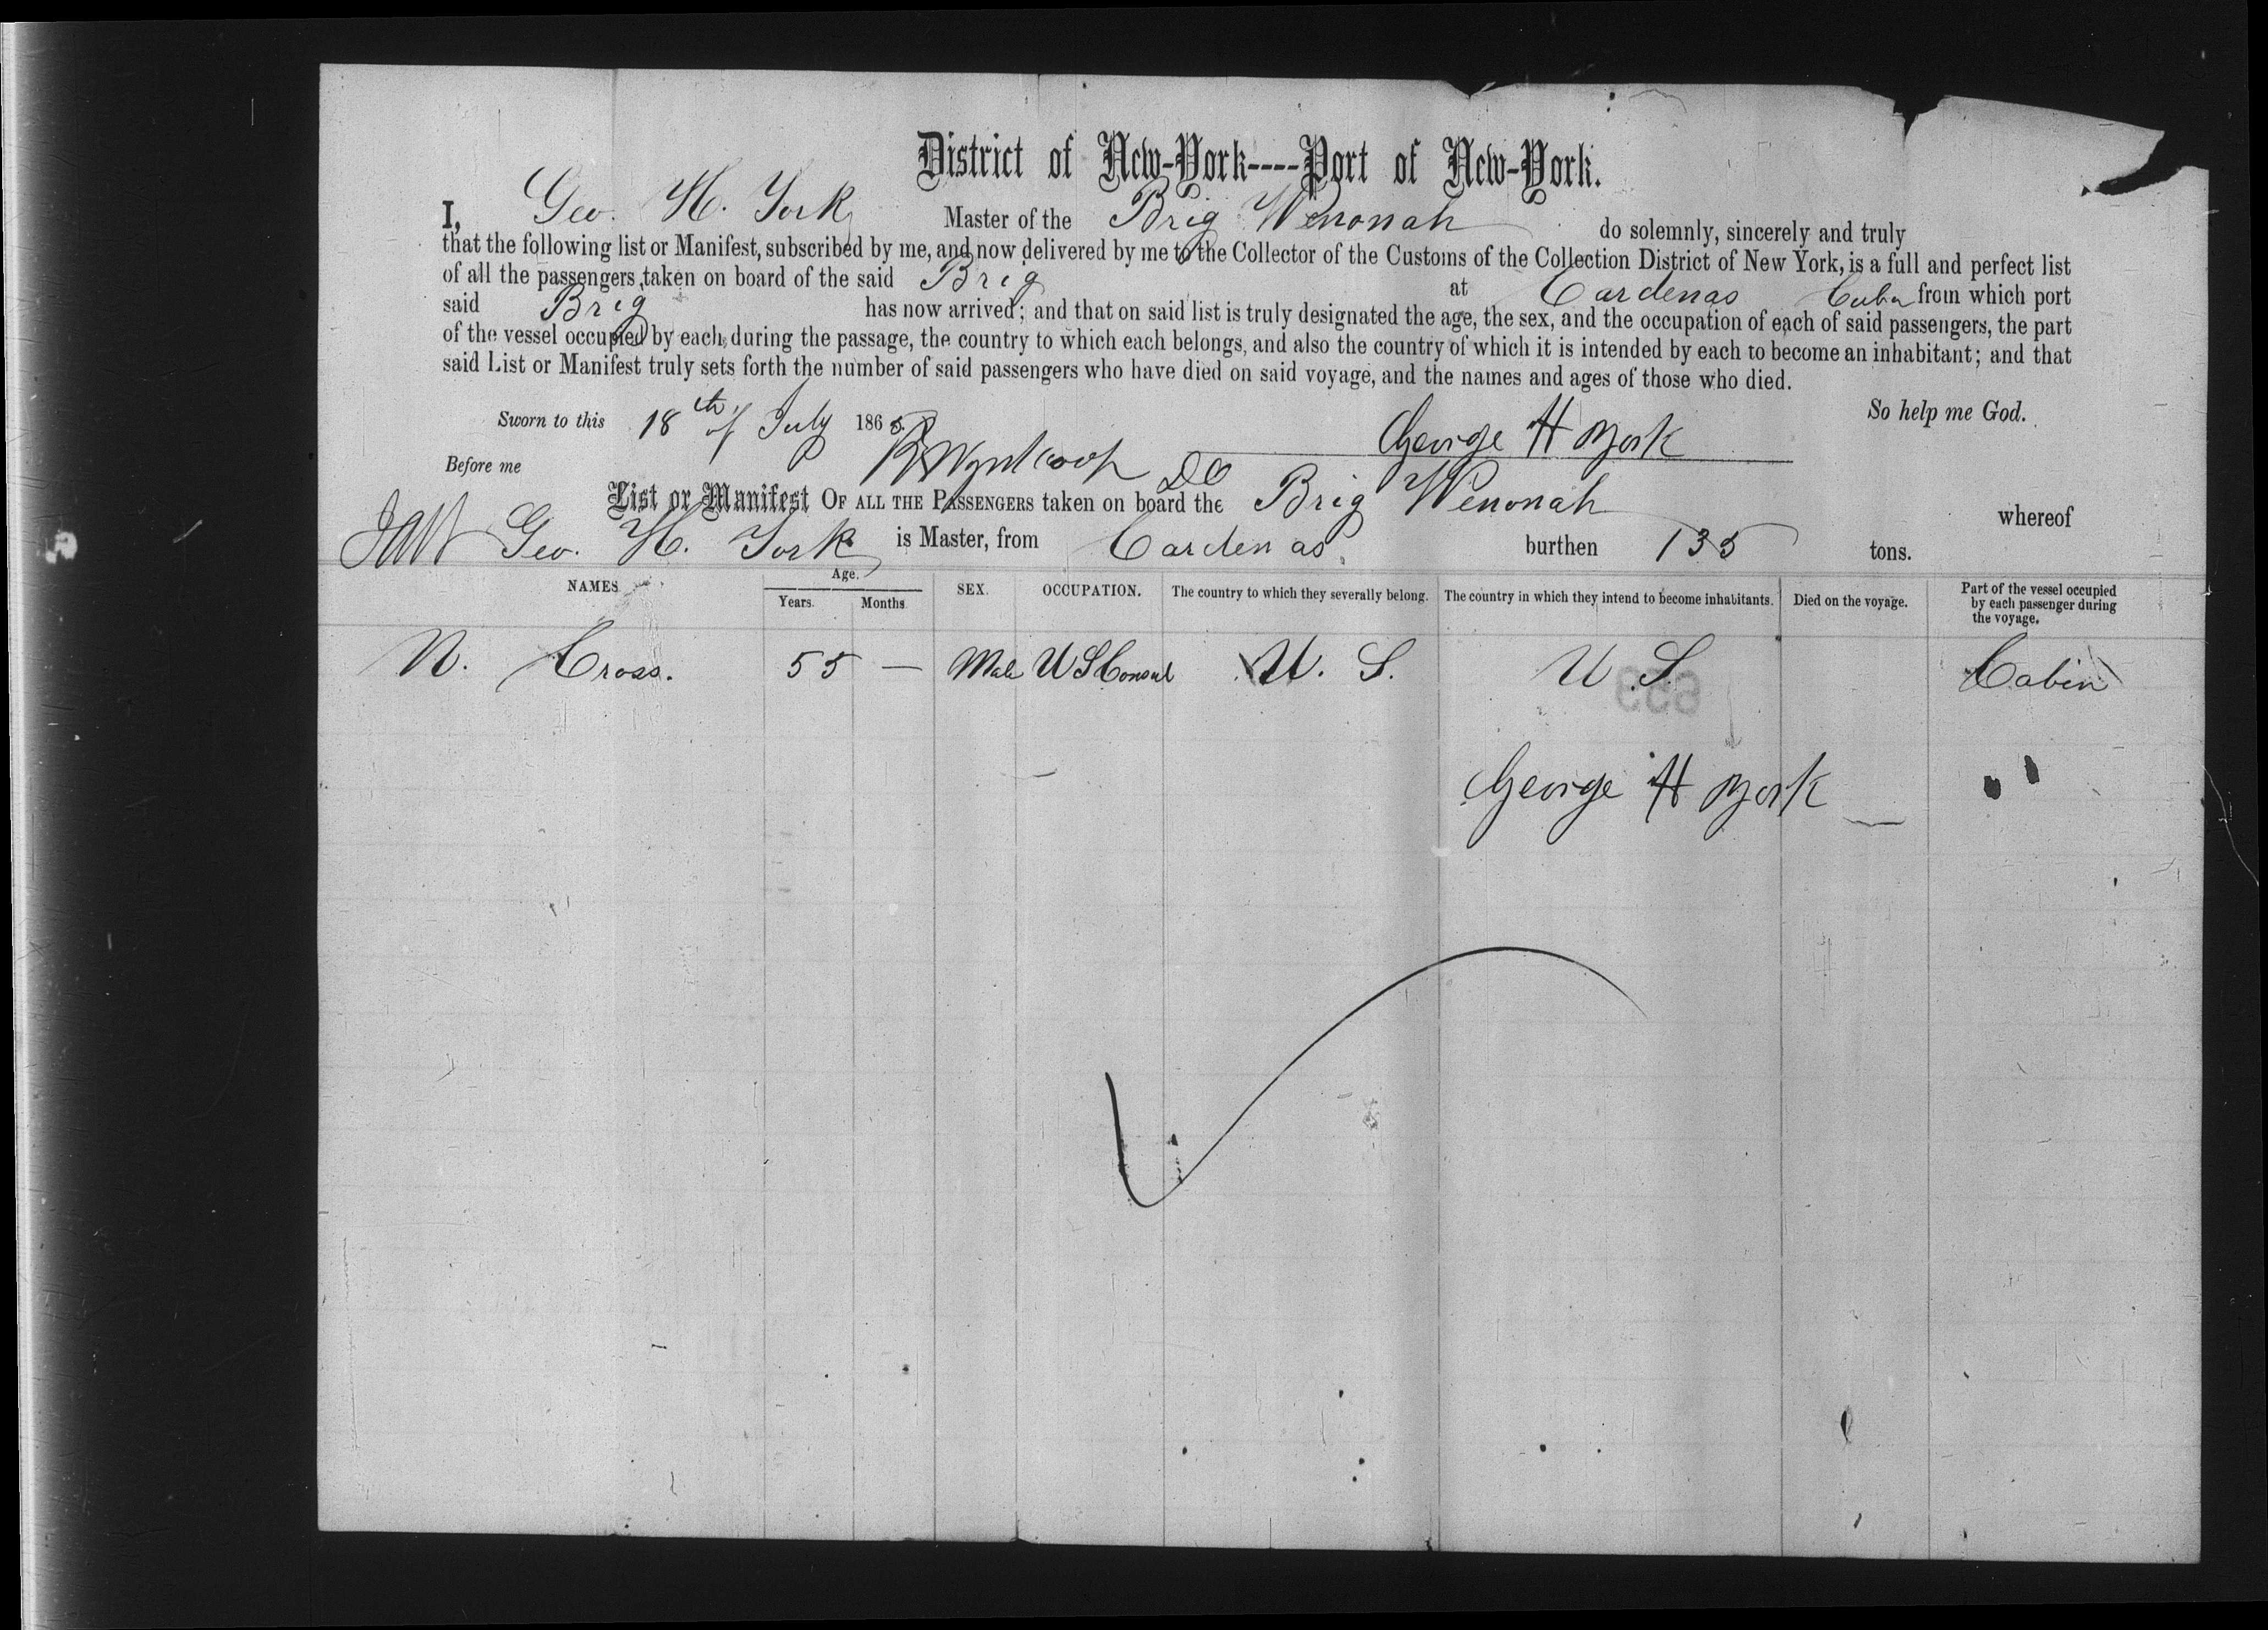 District of New-York----Port of New-York.
I, Geo. H. York Master of the Brig Wenonah do solemnly, sincerely and truly
that the following list or Manifest, subscribed by me, and now delivered by me to the Collector of the Customs of the Collection District of New York, is a full and perfect list
of all the passengers taken on board of the said Brig at Cardenas Cuba from which port
said Brig has now arrived; and that on said list is truly designated the age, the sex, and the occupation of each of said passengers, the part
of the vessel occupied by each during the passage, the country to which each belongs, and also the country of which it is intended by each to become an inhabitant; and that
said List or Manifest truly sets forth the number of said passengers who have died on said voyage, and the names and ages of those who died.
So help me God.
Sworn to this 18th of July 1865. George H York
Before me R Wynkoop DC
List or Manifest OF ALL THE PASSENGERS taken on board the Brig Wenonah whereof
Geo. H. York is Master, from Cardenas burthen 135 tons.
NAMES Age. Years. Months. SEX. OCCUPATION. The country to which they severally belong. The country in which they intend to become inhabitants. Died on the voyage. Part of the vessel occupied by each passenger during the voyage.
N. Cross. 55 — Male U S Consul U. S. U S. Cabin
659
George H York